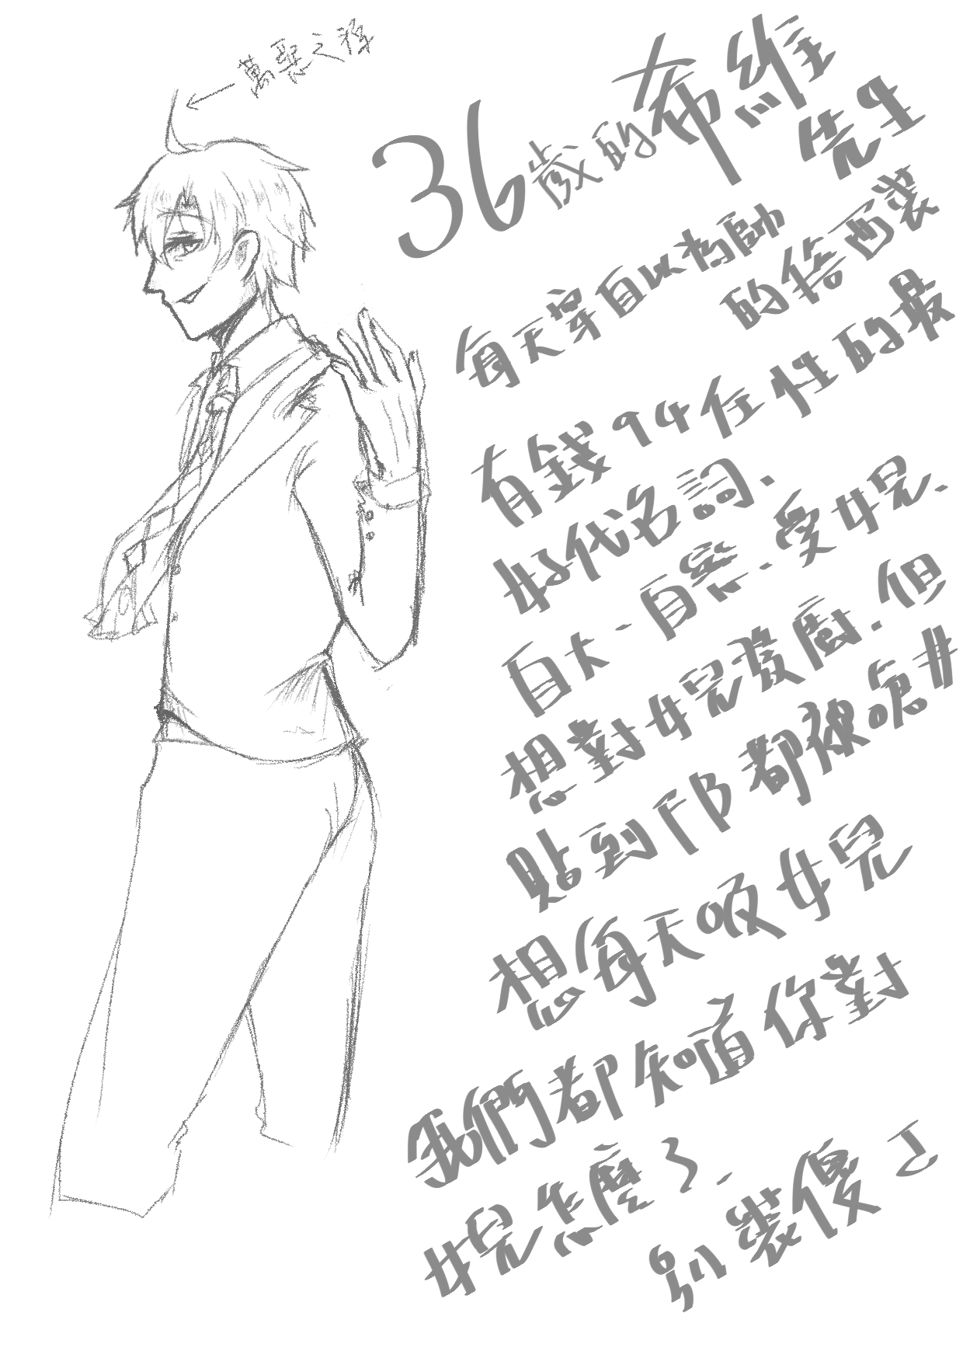 萬惡之源
36歲的希維
先生
每天穿自以為帥
的搶西裝
有錢94任性的最
好代名詞、
自大、自戀、愛女兒、
想對女兒發廚、但
貼到FB都被嗆#
想每天吸女兒
我們都知道你對
女兒怎麼了、
別裝傻了